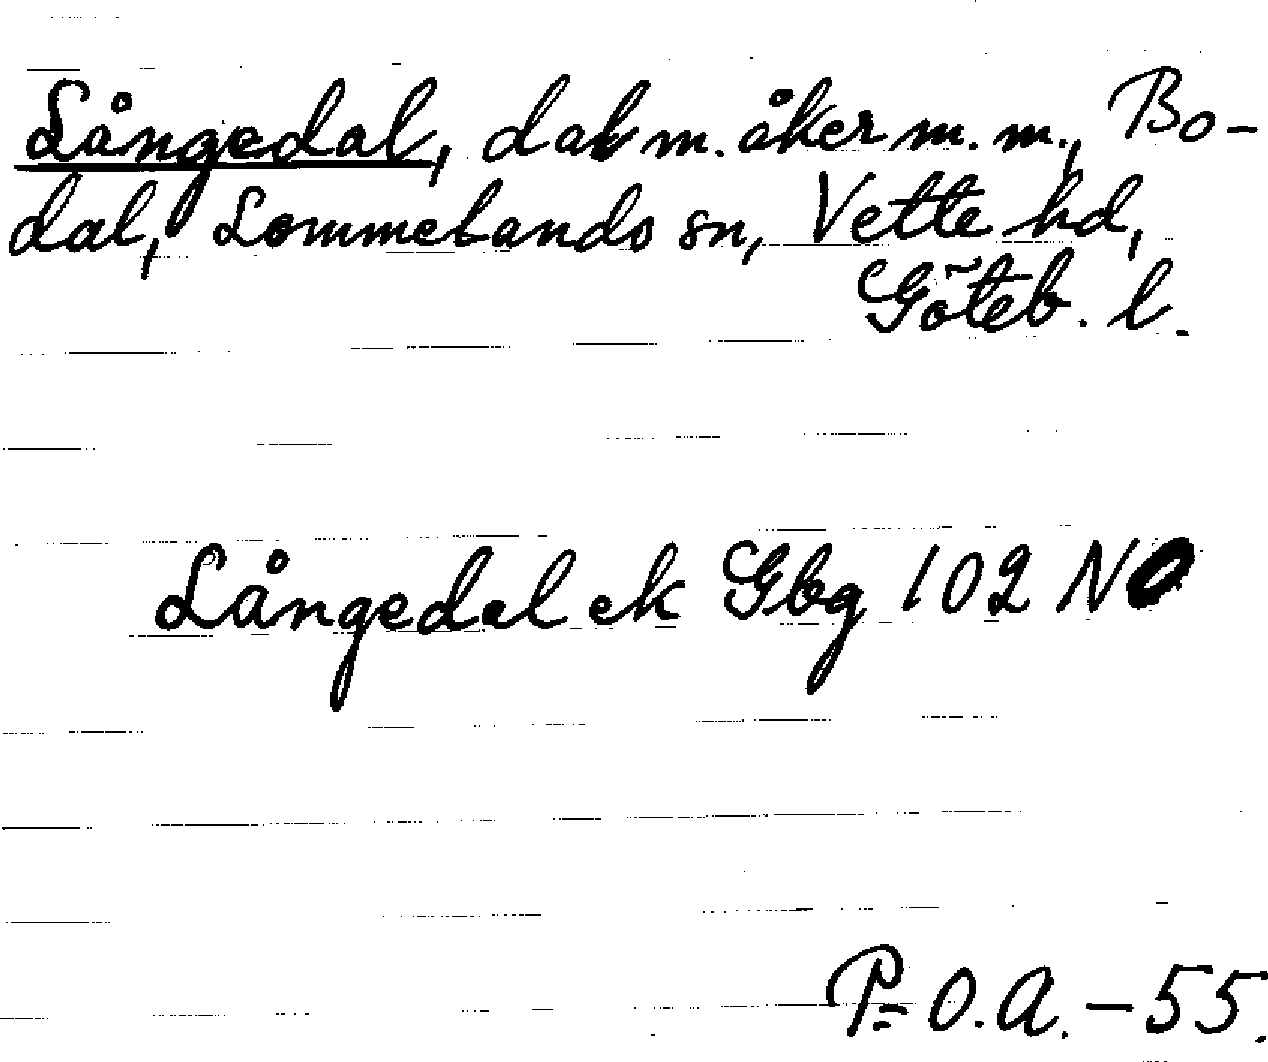 Långedal, dal m. åker m. m., Bo-
dal, Lommelands sn, Vette hd,
Göteb. l.
Långedal ek Gbg 102 NO
P=O.A. – 55.